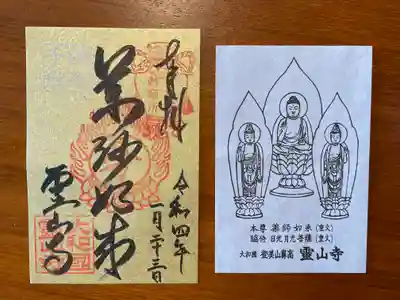 奉拝
薬師如来
霊山寺
令和四年
一月二十三日
本尊 薬師如来 (重文)
脇侍 日光月光菩薩 (重文)
大和國 登美山鼻高 靈山寺